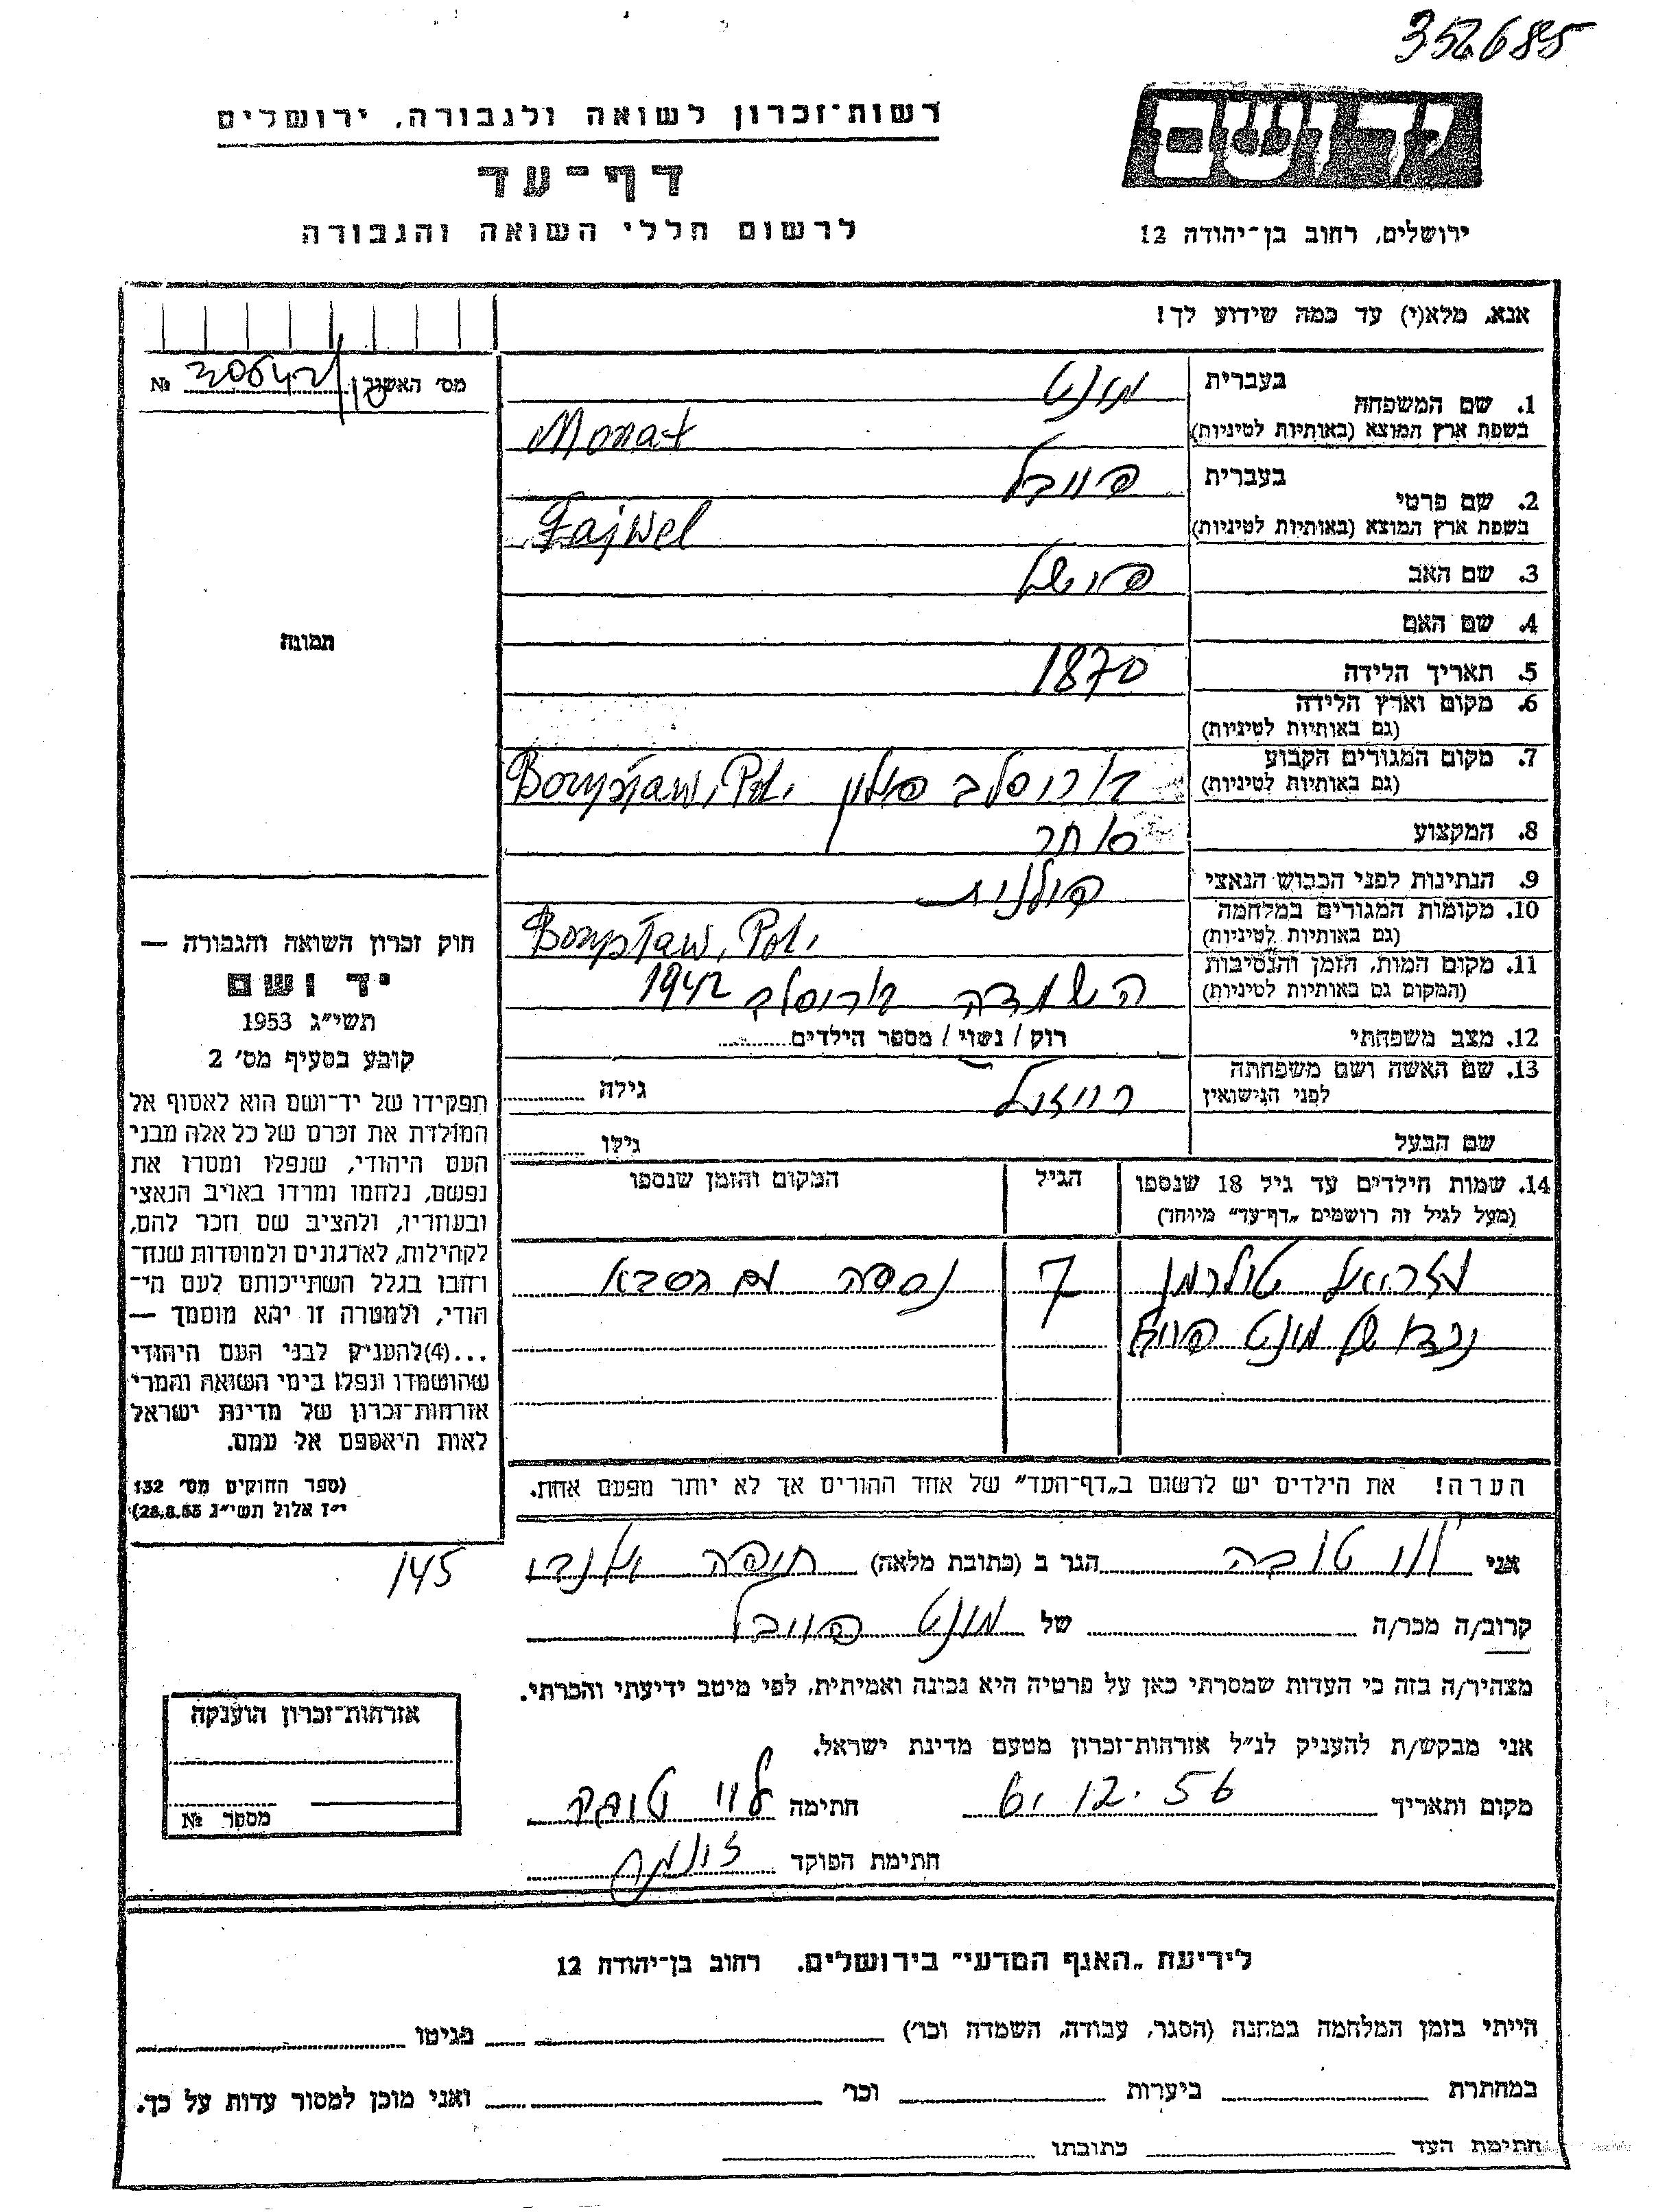 352685
יד ושם
רשות־זכרון לשואה ולגבורה, ירושלים
דף־עד
לרשום חללי השואה והגבורה
ירושלים, רחוב בן־יהודה 12
אנא, מלא(י) עד כמה שידוע לך!
מס׳ האשור № 30642
1. שם המשפחה בעברית מונט
בשפת ארץ המוצא (באותיות לטיניות) Monat
2. שם פרטי בעברית פייבל
בשפת ארץ המוצא (באותיות לטיניות) Fajwel
3. שם האב
4. שם האם
5. תאריך הלידה 1870
6. מקום וארץ הלידה
(גם באותיות לטיניות)
7. מקום המגורים הקבוע
(גם באותיות לטיניות) בוריסלב פולין Borysław, Pol.
8. המקצוע סוחר
9. הנתינות לפני הכבוש הנאצי פולנית
10. מקומות המגורים במלחמה
(גם באותיות לטיניות) Borysław, Pol.
11. מקום המות, הזמן והנסיבות
(המקום גם באותיות לטיניות) השמדה בוריסלב 1942
12. מצב משפחתי רוק / נשוי / מספר הילדים
13. שם האשה ושם משפחתה
לפני הנישואין רייזל גילה
שם הבעל גילו
14. שמות הילדים עד גיל 18 שנספו
(מעל לגיל זה רושמים „דף־עד״ מיוחד)
הגיל
המקום והזמן שנספו
עזריאל טולרמן 7 נספה עם הסבא
נכדו של מונט פייבל
הערה! את הילדים יש לרשום ב„דף־העד״ של אחד ההורים אך לא יותר מפעם אחת.
תמונה
חוק זכרון השואה והגבורה —
יד ושם
תשי״ג 1953
קובע בסעיף מס׳ 2
תפקידו של יד־ושם הוא לאסוף אל
המולדת את זכרם של כל אלה מבני
העם היהודי, שנפלו ומסרו את
נפשם, נלחמו ומרדו באויב הנאצי
ובעוזריו, ולהציב שם וזכר להם,
לקהילות, לארגונים ולמוסדות שנח־
רבו בגלל השתייכותם לעם הי־
הודי, ולמטרה זו יהא מוסמך —
...(4)להעניק לבני העם היהודי
שהושמדו ונפלו בימי השואה והמרי
אזרחות־זכרון של מדינת ישראל
לאות היאספם אל עמם.
(ספר החוקים מס׳ 132
י״ז אלול תשי״ג 28.8.53)
145
אני לוי טובה הגר ב (כתובת מלאה) חיפה
קרוב/ה מכר/ה של מונט פייבל
מצהיר/ה בזה כי העדות שמסרתי כאן על פרטיה היא נכונה ואמיתית, לפי מיטב ידיעתי והכרתי.
אני מבקש/ת להעניק לנ״ל אזרחות־זכרון מטעם מדינת ישראל.
מקום ותאריך 6.12.56 חתימה לוי טובה
חתימת הפוקד
אזרחות־זכרון הוענקה
מספר №
לידיעת „האגף המדעי״ בירושלים. רחוב בן־יהודה 12
הייתי בזמן המלחמה במחנה (הסגר, עבודה, השמדה וכו׳) בגיטו
במחתרת ביערות וכו׳ ואני מוכן למסור עדות על כך.
חתימת העד כתובתו